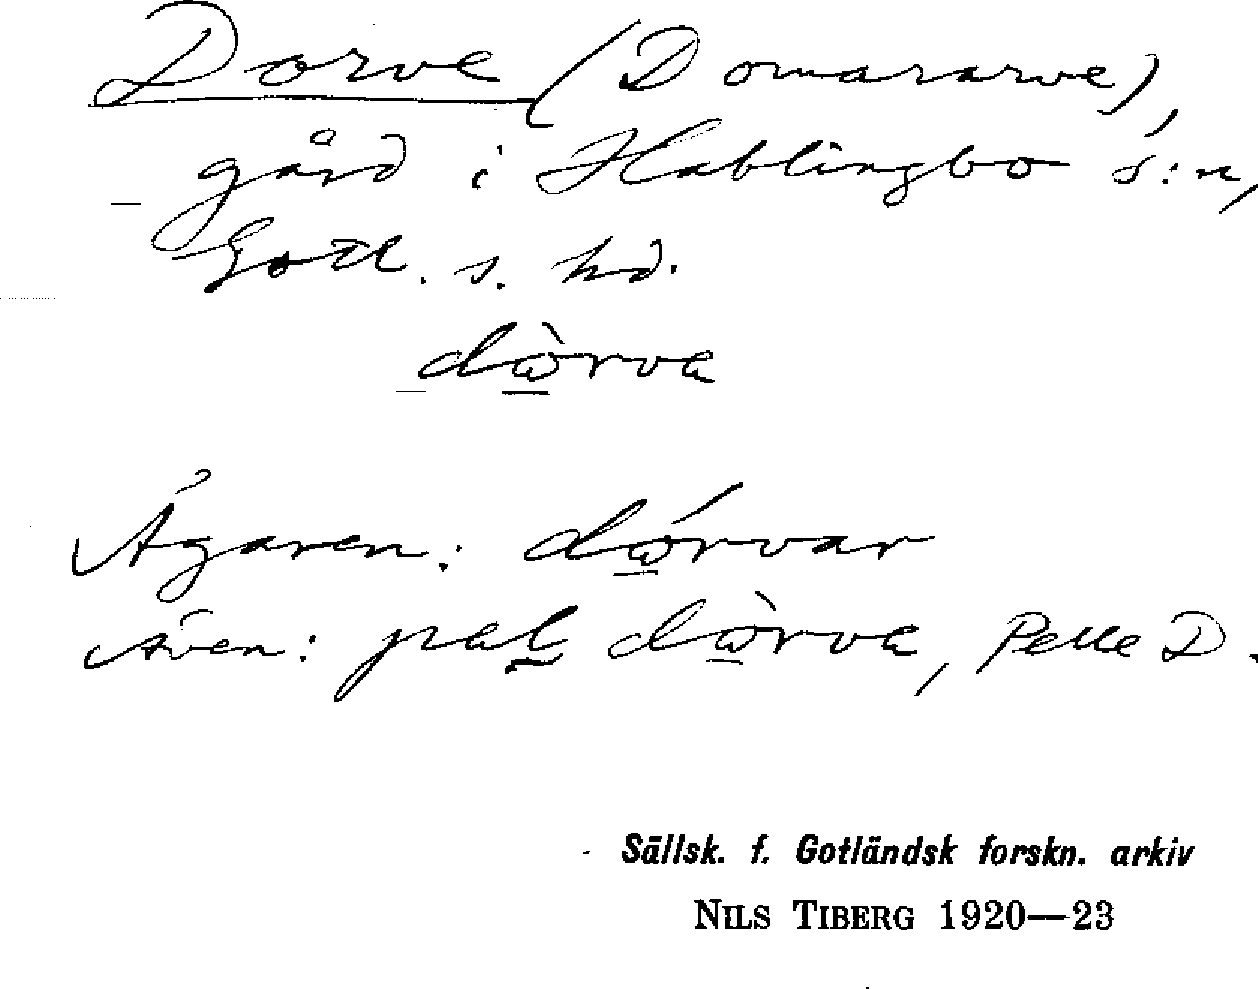 Dorve (Domararve),
gård i Hablingbo s:n,
Gotl. s. hd.
dὼrva
Ägaren: dώrvar
Även: pal dὼrva, Pelle D.
Sällsk. f. Gotländsk forskn. arkiv
NILS TIBERG 1920—23